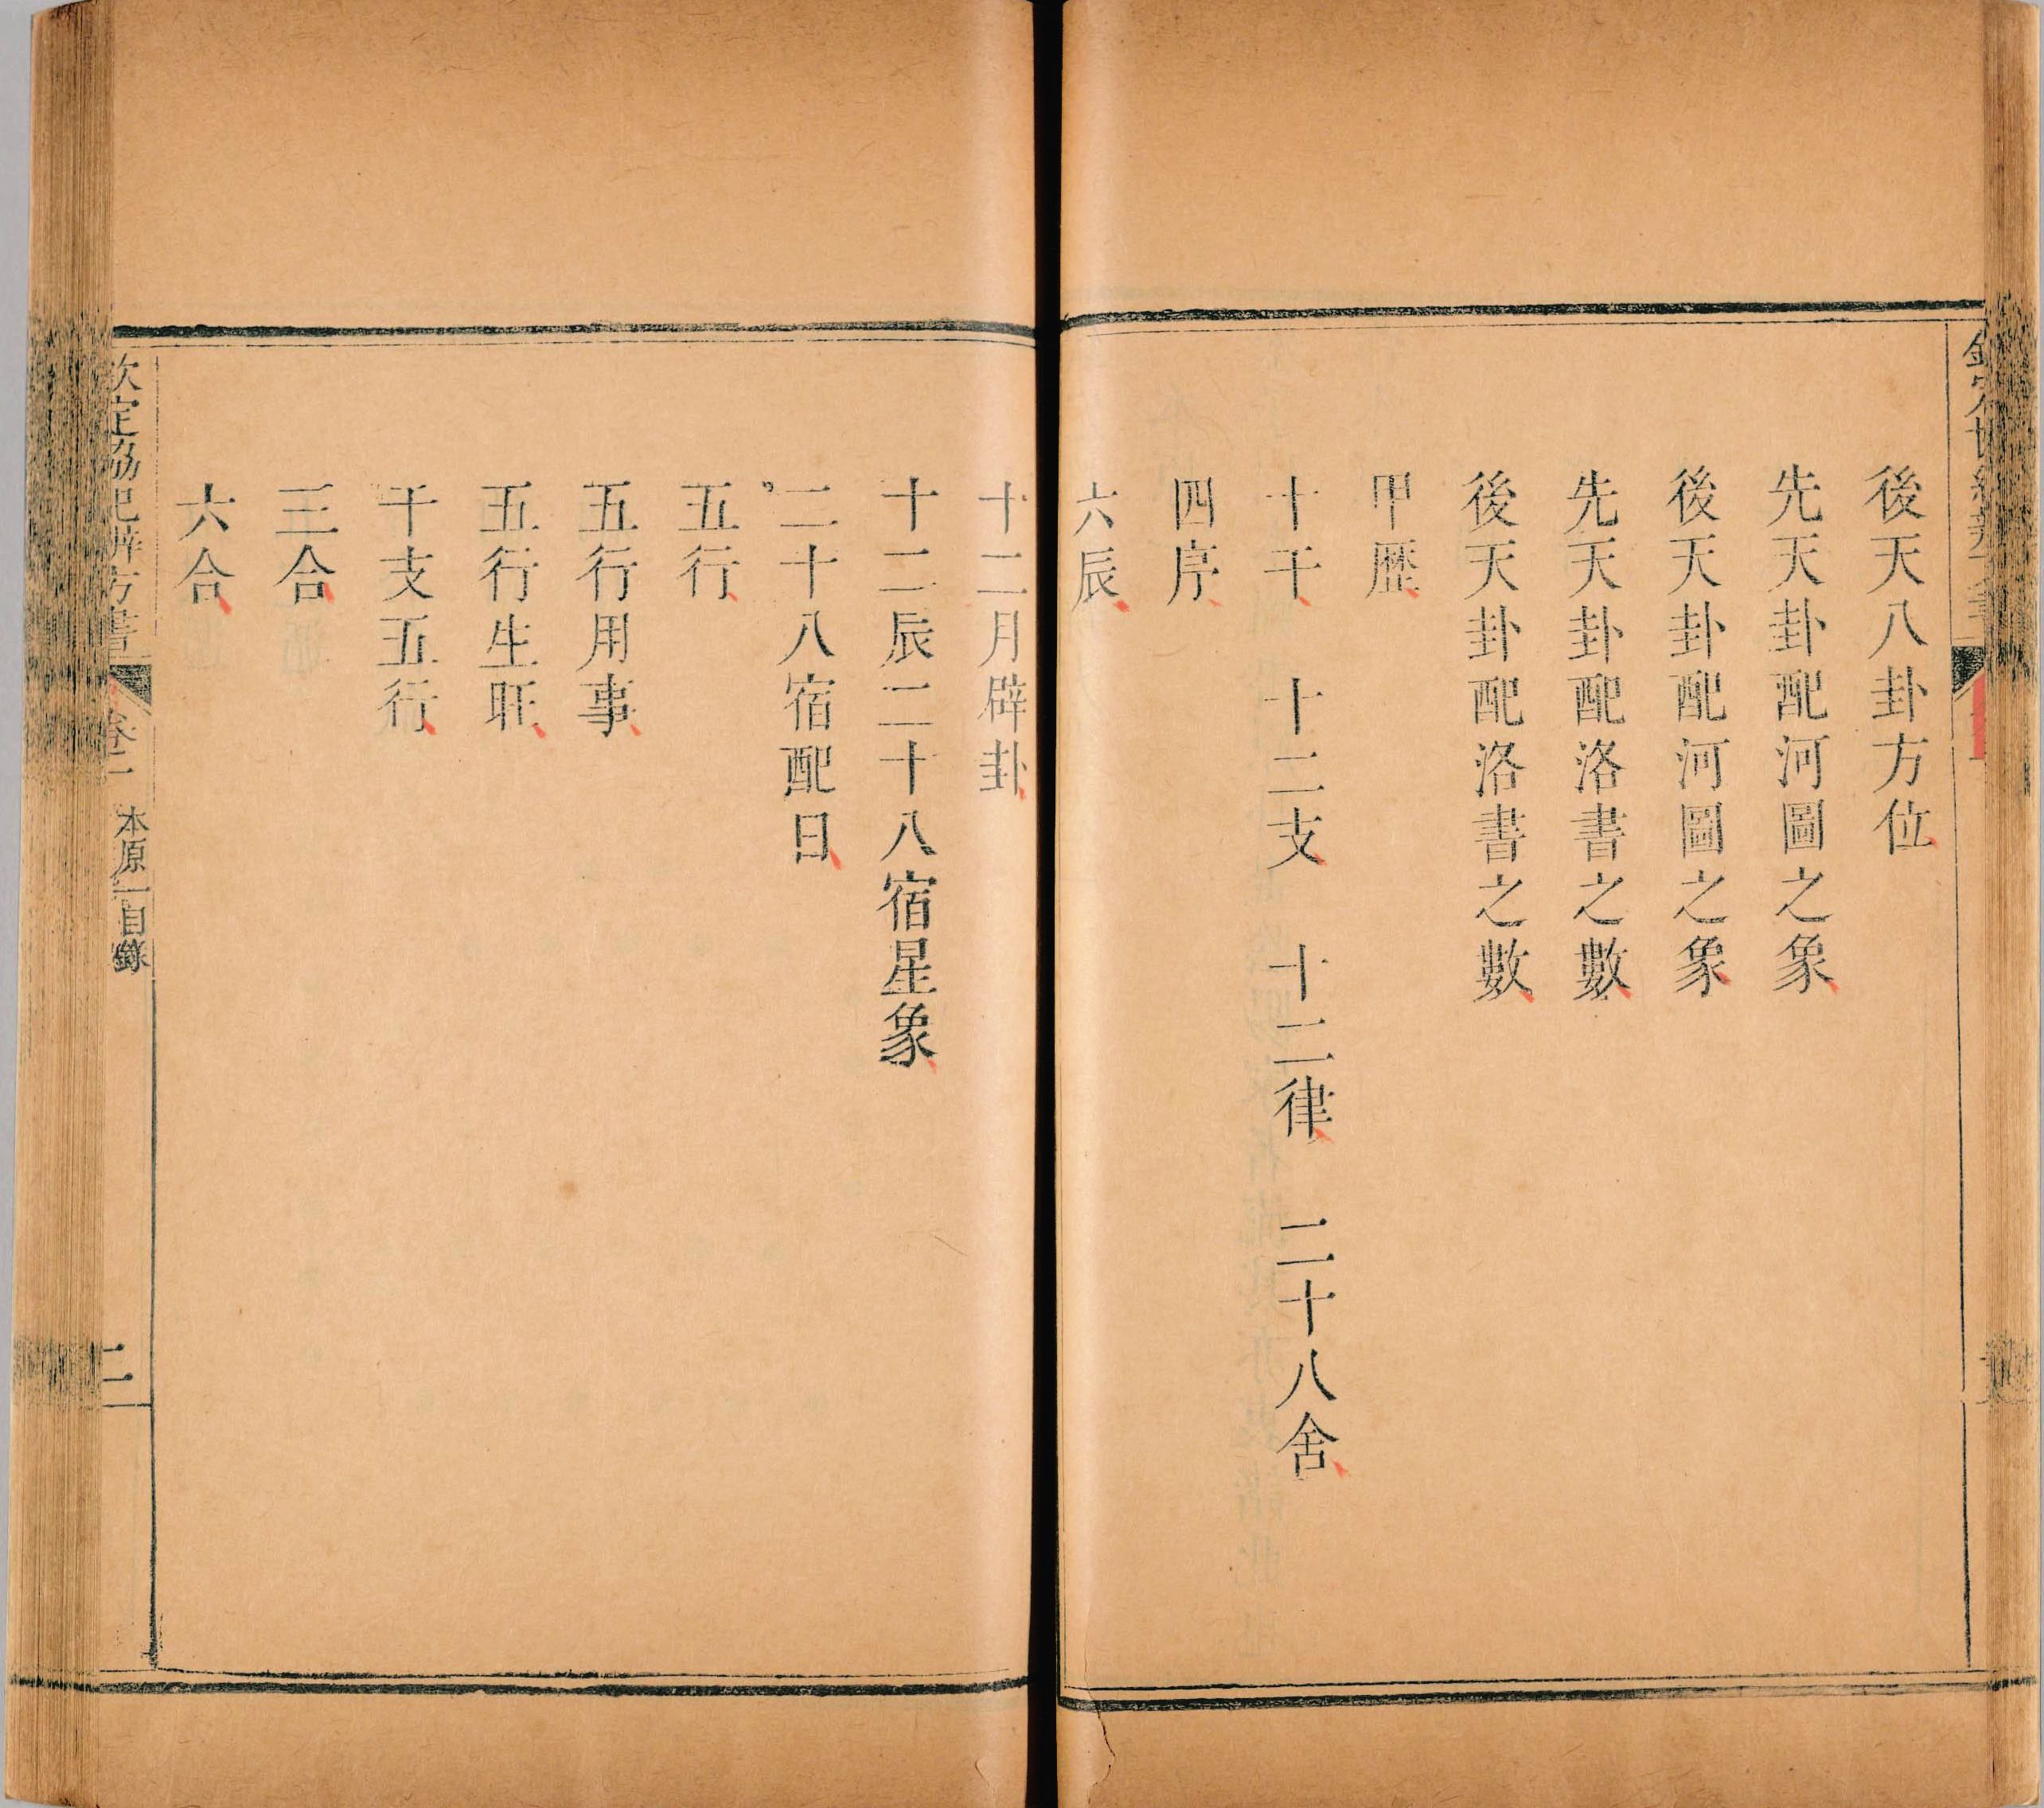 後天八卦方位
先天卦配河圖之象
後天卦配河圖之象
先天卦配洛書之數
後天卦配洛書之數
甲歷
十干　十二支　十二律　二十八舍
四序
六辰
十二月辟卦
十二辰二十八宿星象
二十八宿配日
五行
五行用事
五行生旺
干支五行
三合
六合
欽定協紀辨方書　卷一　本原一目錄　二